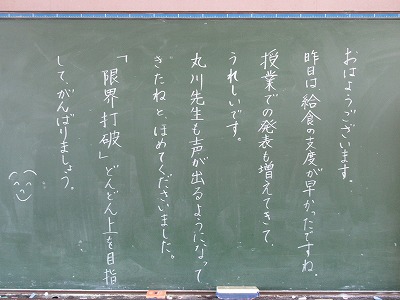 おはようございます。
昨日は、給食の支度が早かったですね。
授業での発表も増えてきて、
うれしいです。
丸川先生も声が出るようになって
きたねと、ほめてくださいました。
「限界打破」どんどん上を目指
して、がんばりましょう。